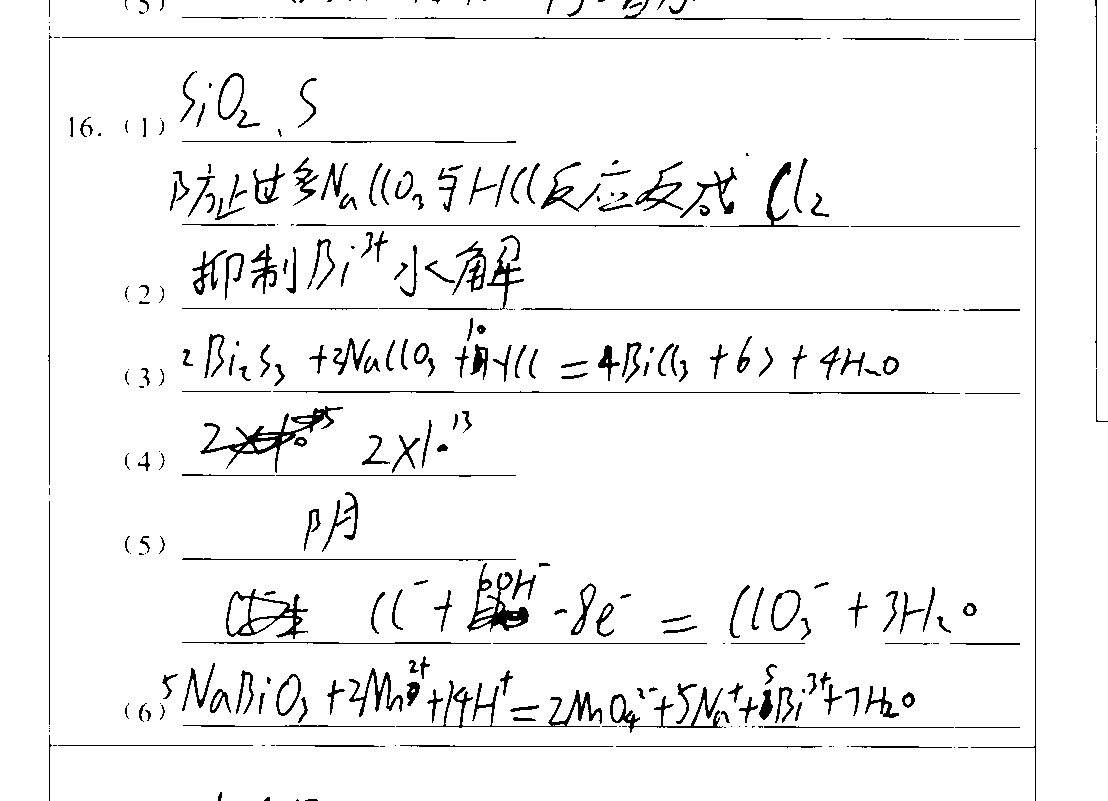 (5)
16. (1) SiO₂、S
防止过多NaClO₃与HCl反应反成 Cl₂
(2) 抑制Bi³⁺水解
(3) 2Bi₂S₃ +2NaClO₃ +10HCl =4BiCl₃ +6S + 4H₂O
(4) 2×10¹³
(5) 阴
Cl⁻ + 6OH⁻ -8e⁻ = ClO₃⁻ + 3H₂O
(6) 5NaBiO₃ +2Mn²⁺+14H⁺=2MnO₄²⁻+5Na⁺+5Bi³⁺+7H₂O